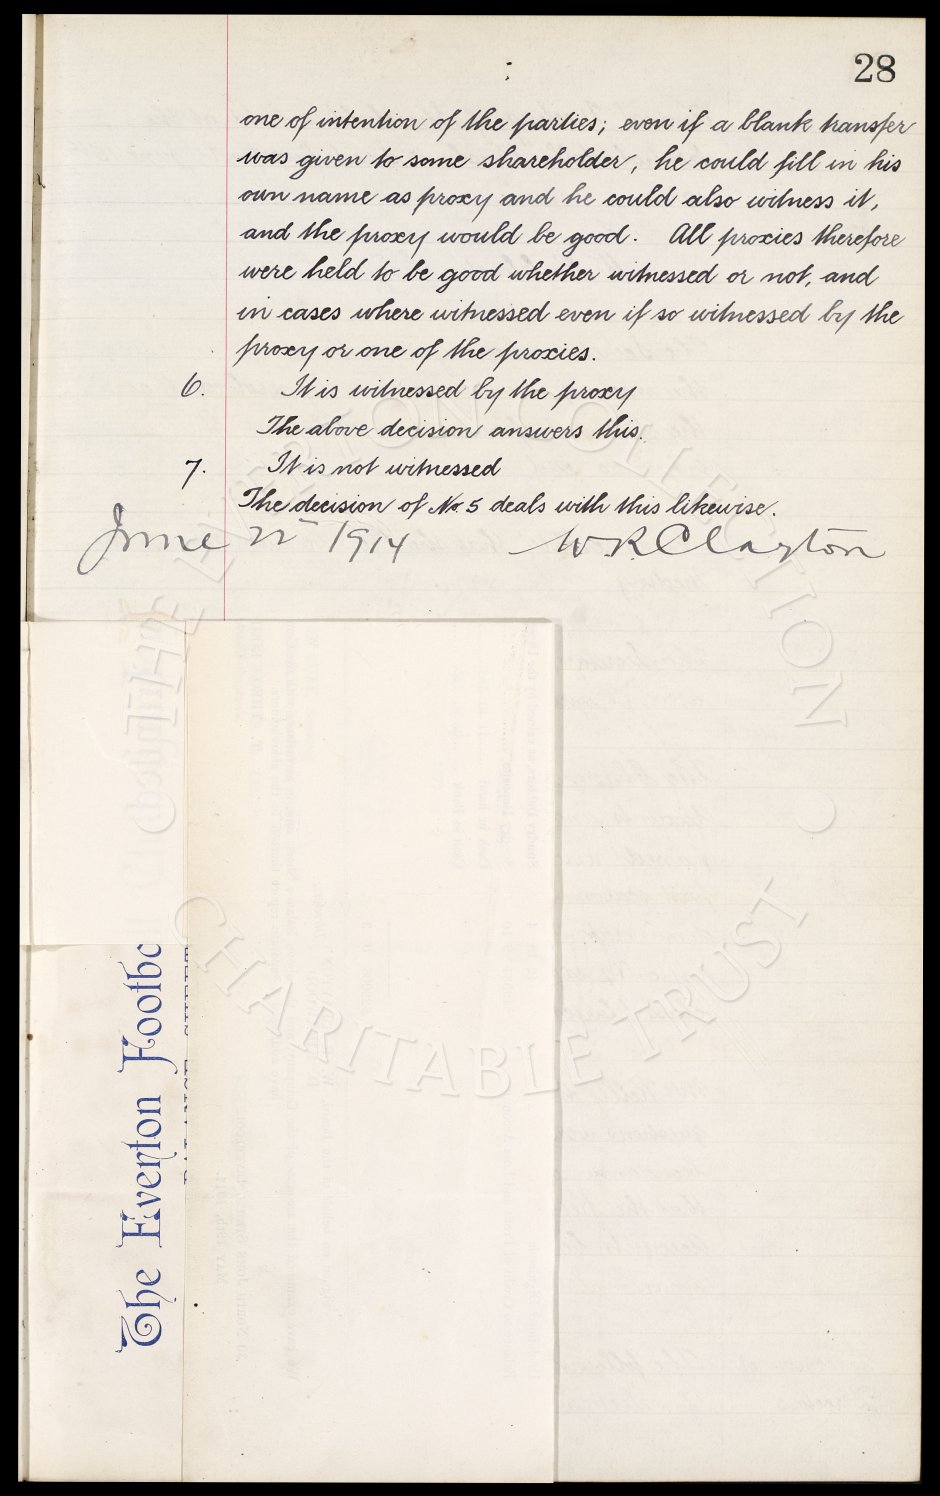 28
one of intention of the parties; even if a blank transfer
was given to some shareholder, he could fill in his
own name as proxy and he could also witness it,
and the proxy would be good. All proxies therefore
were held to be good whether witnessed or not, and
in cases where witnessed even if so witnessed by the
proxy or one of the proxies.
6. It is witnessed by the proxy
The above decision answers this.
7. It is not witnessed
The decision of No 5 deals with this likewise.
June 22 1914 W R Clayton
The Everton Footba
THE EVERTON COLLECTION
CHARITABLE TRUST